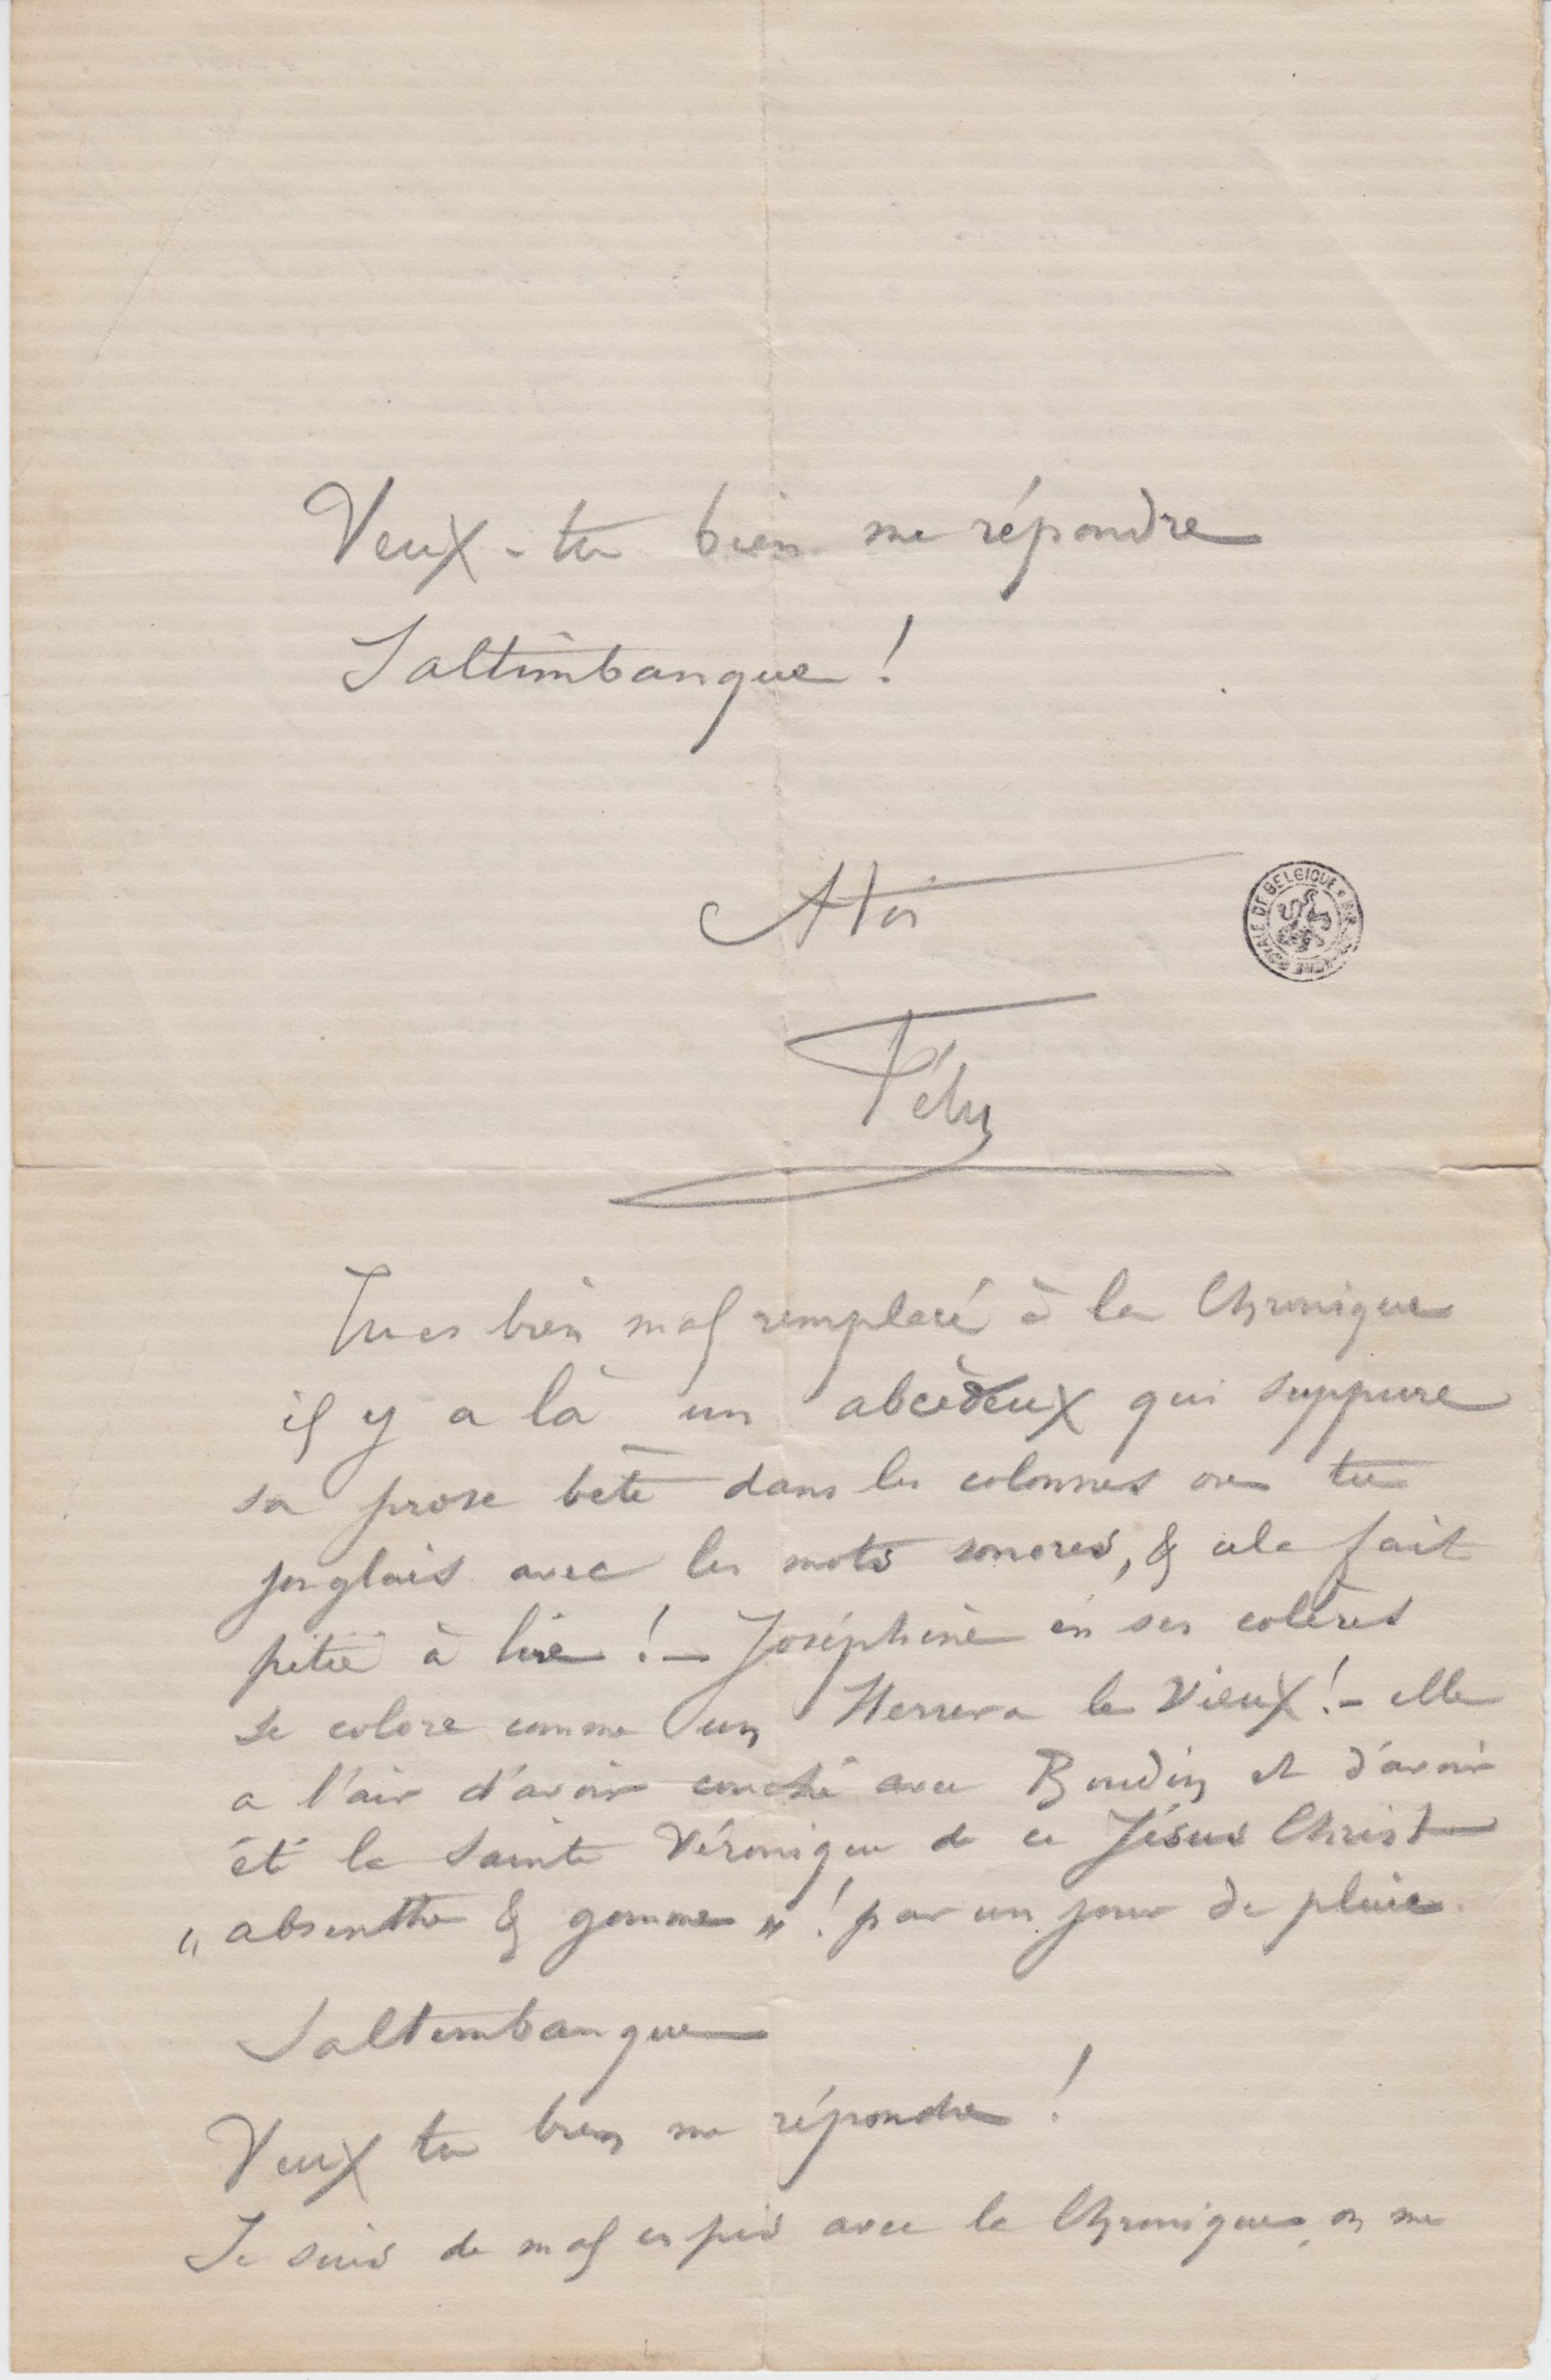 Veux-tu bien me répondre
Saltimbanque !
A toi
Fély
BIBLIOTHÈQUE ROYALE DE BELGIQUE
Tu es bien mal remplacé à la Chronique
il y a là un abcèdeux qui suppure
sa prose bête dans les colonnes ou tu
jonglais avec les mots sonores, & cela fait
pitié à lire ! — Joséphine en ses colères
se colore comme un Herrera le Vieux ! — elle
a l'air d'avoir couché avec Boudin et d'avoir
été la Sainte Véronique de ce Jésus Christ
„ absinthe & gomme „ ! par un jour de pluie.
Saltimbanque
Veux tu bien me répondre !
Je suis de mal en pis avec la Chronique, on me